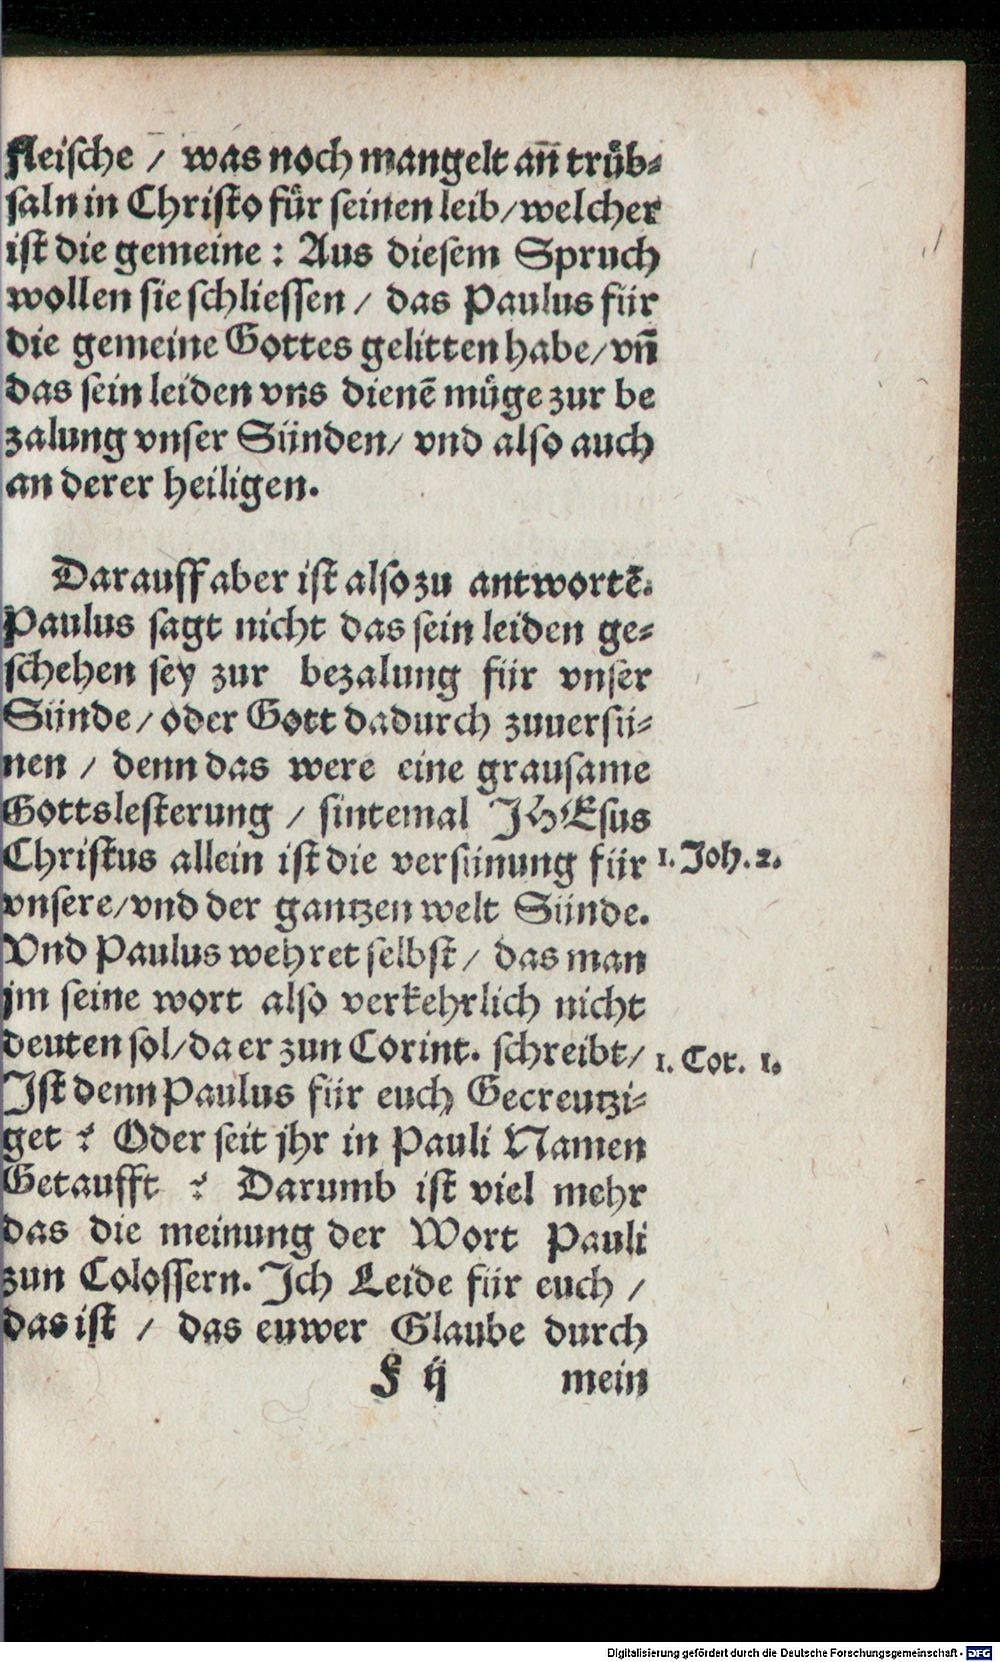 fleische / was noch mangelt an̄ trůb-
saln in Christo fůr seinen leib/welcher
ist die gemeine : Aus diesem Spruch
wollen sie schliessen / das Paulus für
die gemeine Gottes gelitten habe/vn̄
das sein leiden vns dienē můge zur be
zalung vnser Sünden/ vnd also auch
an derer heiligen.
Darauff aber ist also zu antwortē.
Paulus sagt nicht das sein leiden ge-
schehen sey zur bezalung für vnser
Sünde/oder Gott dadurch zuuersü-
nen / denn das were eine grausame
Gottslesterung / sintemal JHEsus
Christus allein ist die versünung für
1. Joh. 2.
vnsere/vnd der gantzen welt Sünde.
Vnd Paulus wehret selbst/ das man
jm seine wort also verkehrlich nicht
deuten sol/da er zun Corint. schreibt/
1. Cor. 1.
Jst denn Paulus für euch Gecreutzi-
get ? Oder seit jhr in Pauli Namen
Getaufft ? Darumb ist viel mehr
das die meinung der Wort Pauli
zun Colossern. Jch Leide für euch /
das ist / das euwer Glaube durch
F ij mein
Digitalisierung gefördert durch die Deutsche Forschungsgemeinschaft - DFG